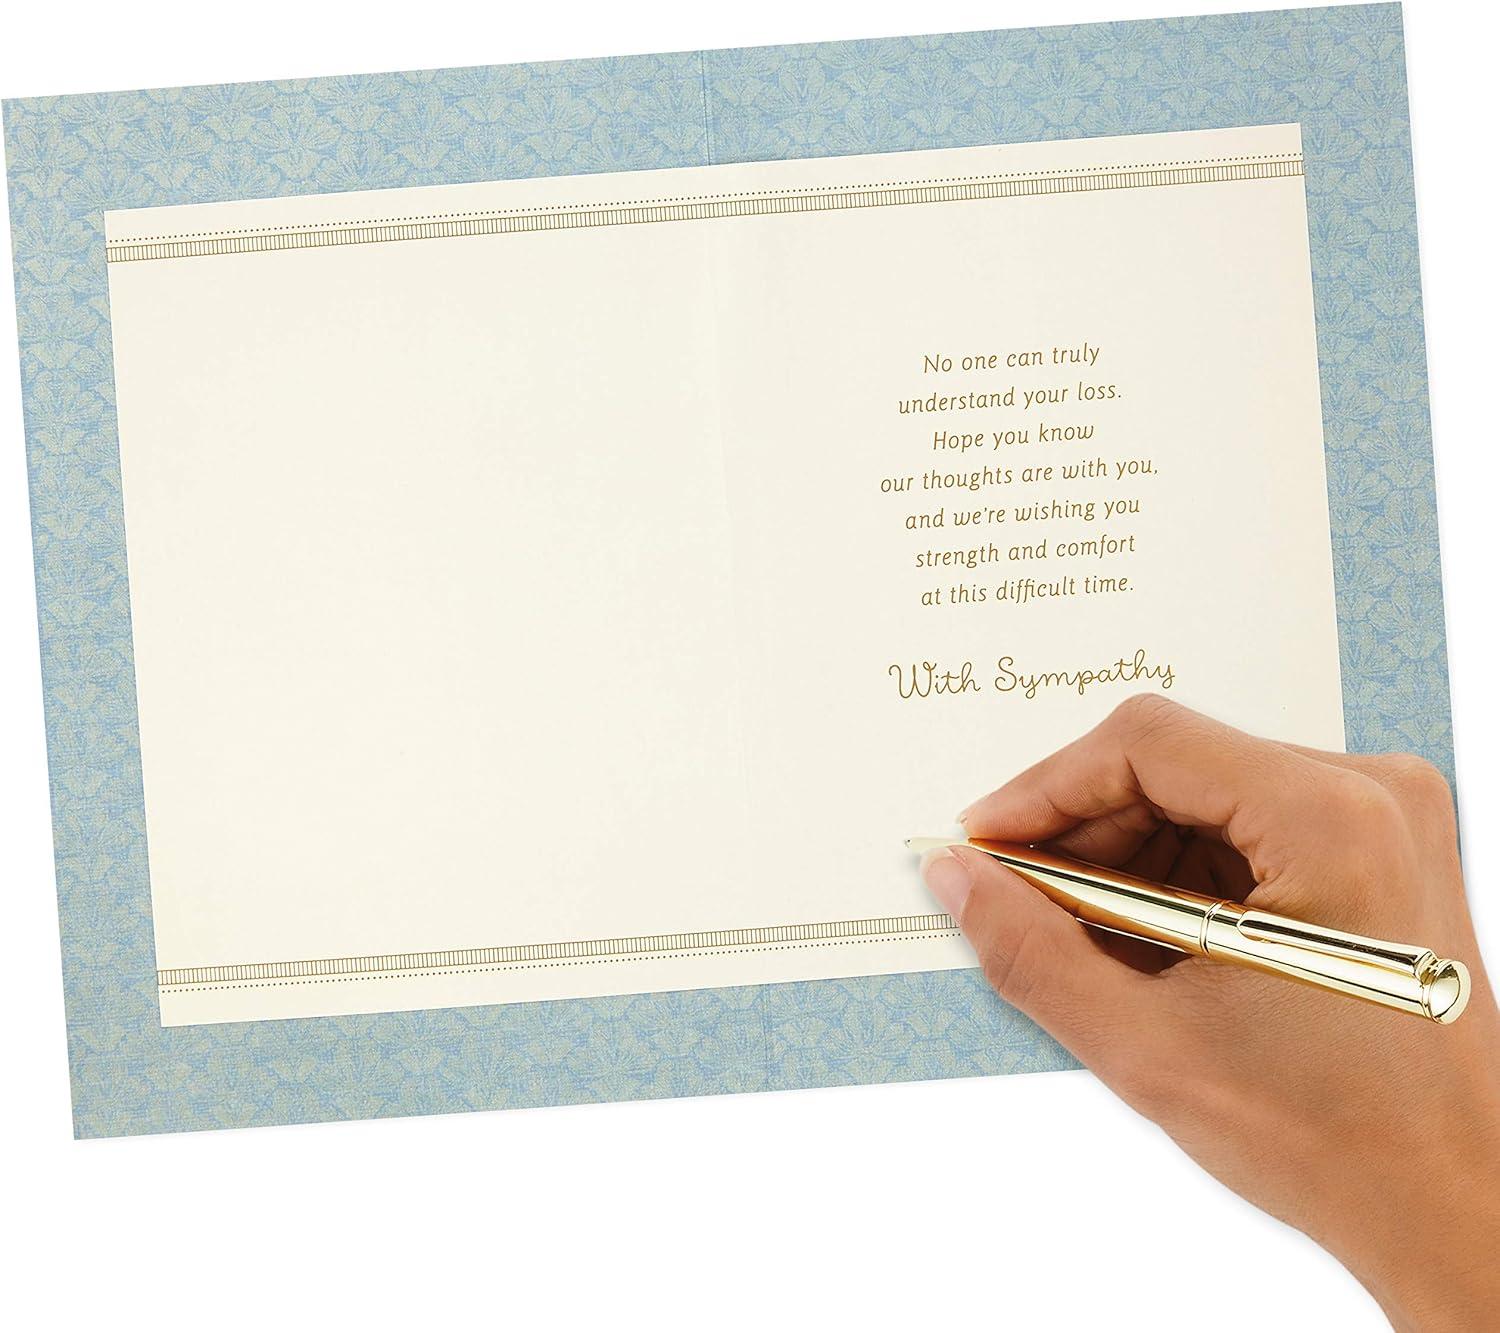 No one can truly
understand your loss.
Hope you know
our thoughts are with you,
and we're wishing you
strength and comfort
at this difficult time.
With Sympathy